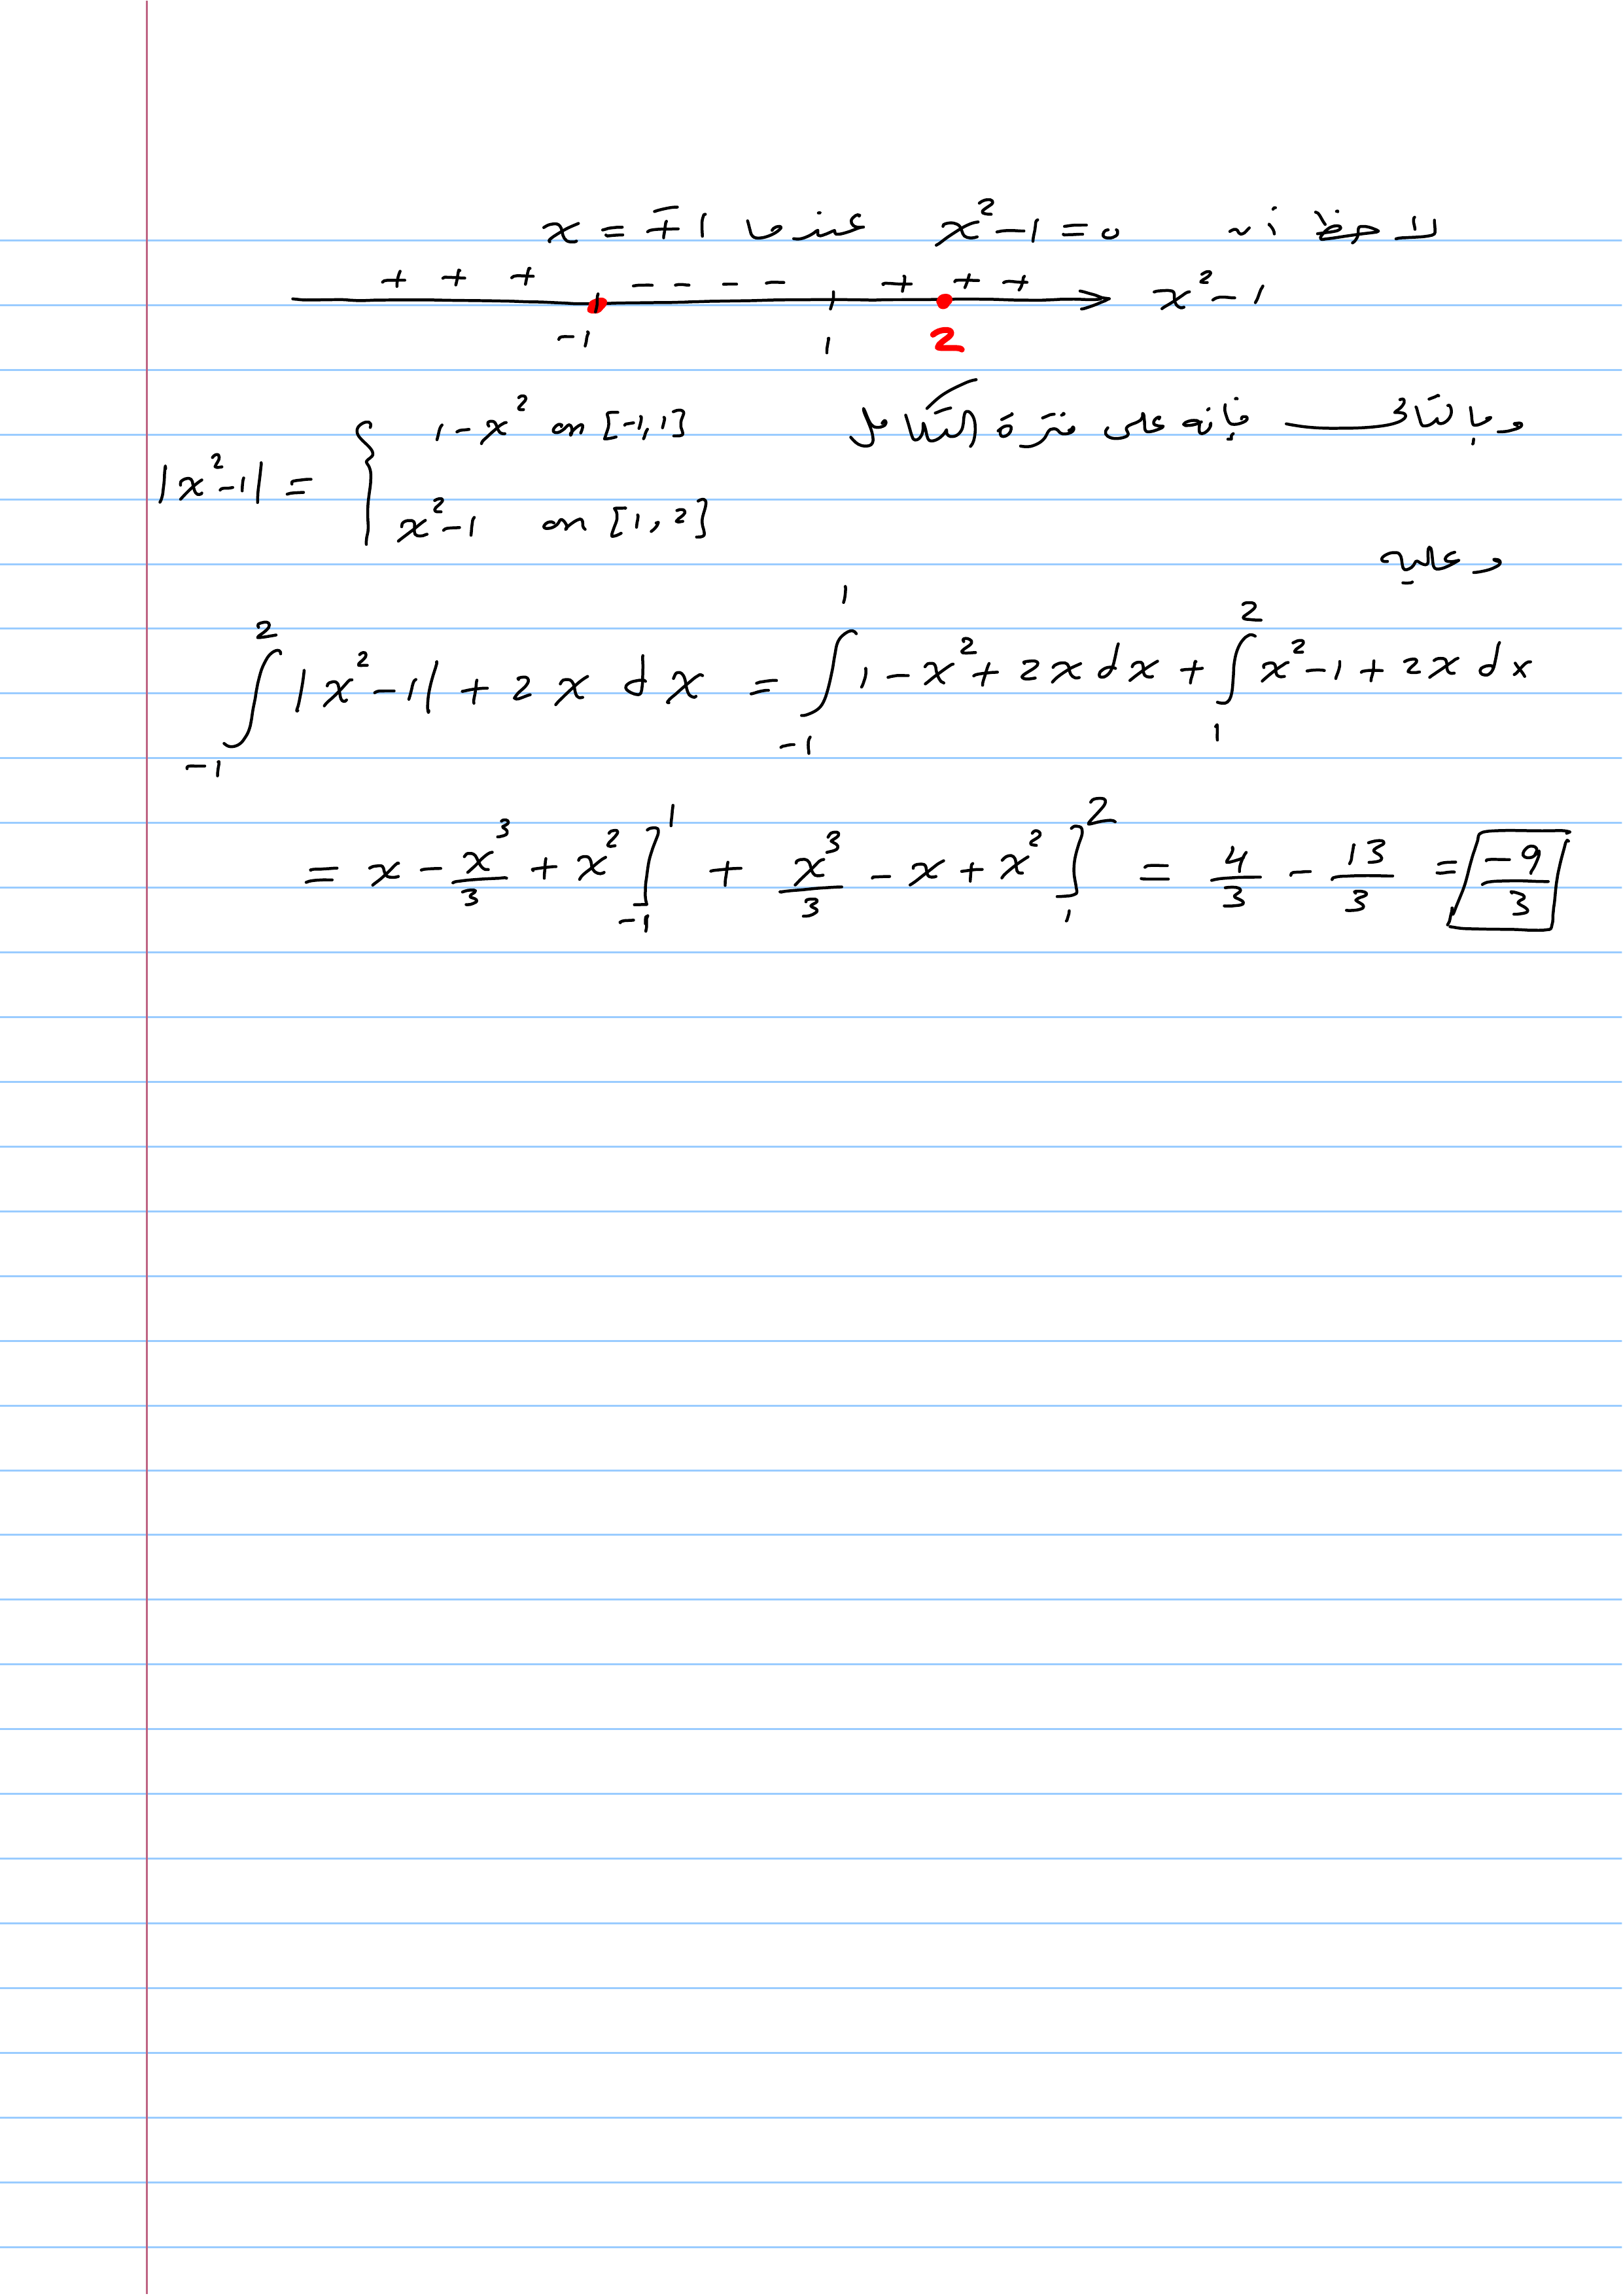 لاحظ أن x² - 1 = 0 عندما x = ∓1
+ + + - - - - + + + x² - 1
-1 1 2
وبالتالي فإنه على فترة التكامل
|x² - 1| = { 1 - x² on [-1, 1]
x² - 1 on [1, 2]
وعليه
∫_{-1}^{2} |x² - 1| + 2x dx = ∫_{-1}^{1} 1 - x² + 2x dx + ∫_{1}^{2} x² - 1 + 2x dx
= x - x³/3 + x² ]_{-1}^{1} + x³/3 - x + x² ]_{1}^{2} = 4/3 - 13/3 = -9/3